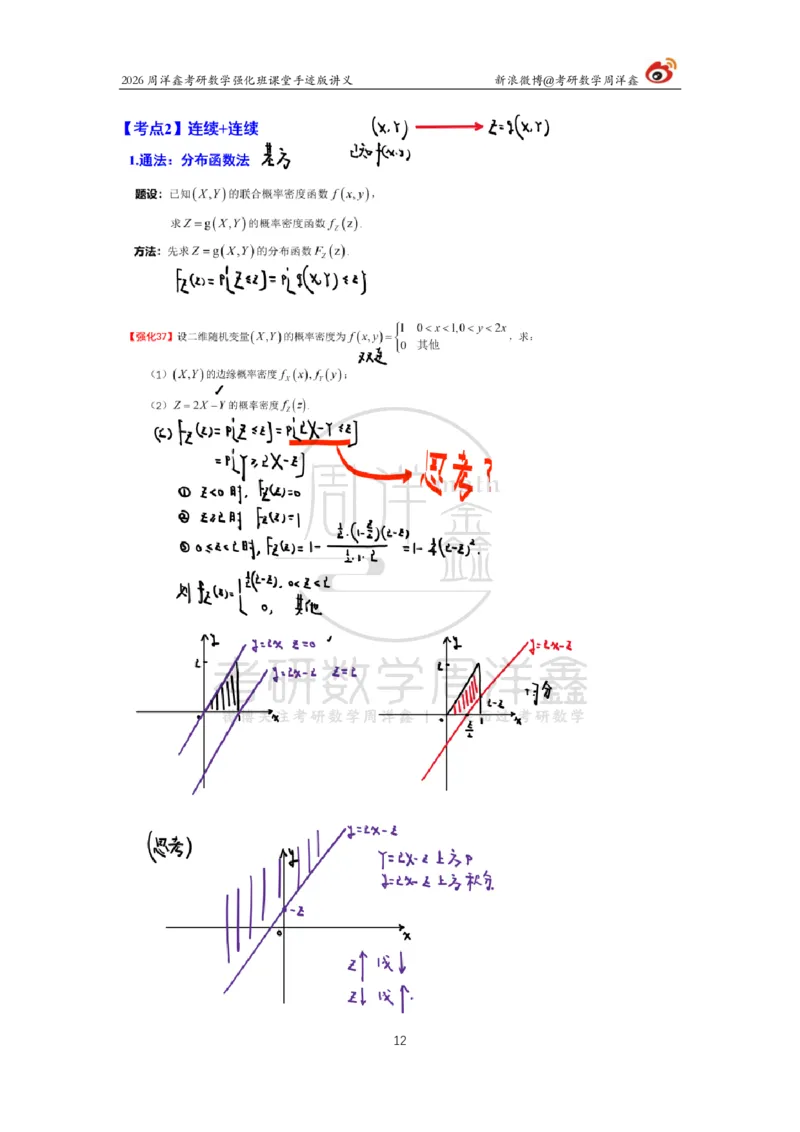 2026周洋鑫考研数学强化班课堂手迹版讲义 新浪微博@考研数学周洋鑫
【考点2】连续+连续 (X,Y) → Z=g(X,Y)
1.通法：分布函数法 已知f(x,y)
题设：已知(X,Y)的联合概率密度函数f(x,y)，
求Z=g(X,Y)的概率密度函数f_Z(z).
方法：先求Z=g(X,Y)的分布函数F_Z(z).
F_Z(z)=P{Z≤z}=P{g(X,Y)≤z}
【强化37】设二维随机变量(X,Y)的概率密度为f(x,y)={1 0<x<1,0<y<2x
0 其他，求：
（1）(X,Y)的边缘概率密度f_X(x),f_Y(y)；
（2）Z=2X-Y的概率密度f_Z(z).
(2) F_Z(z)=P{Z≤z}=P{2X-Y≤z}
=P{Y≥2X-z} 思考?
① z<0时, F_Z(z)=0
② z≥2时 F_Z(z)=1
③ 0≤z<2时, F_Z(z)=1-½·(1-z/2)(2-z)/½·1·2=1-¼(2-z)².
则 f_Z(z)={½(2-z), 0<z<2
0, 其他
y y=2x z=0
2 y=2x-2 z=2
0 1 x
y y=2x-z
2
2-z
0 z/2 1 x
周洋鑫
考研数学周洋鑫
(思考) y=2x-z
y Y=2X-z上方P
y=2x-z上方积分
-z
0 x
z↑ 截↓
z↓ 截↑.
12